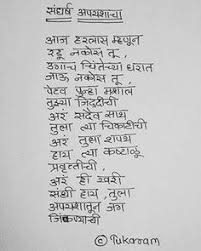 संघर्ष अपयशाचा
आज हरलास म्हणून
रडू नकोस तू,
उगाच चिंतेच्या घरात
जाऊ नकोस तू,
पेटव पुन्हा मशाल
तुझ्या जिद्दीची
अरं सदैव साथ
तुला त्या चिकाटीची
अरं तुला शपथ
हाय त्या कष्टाळू
प्रवृत्तीची,
अरं ही खरी
संधी हाय, तुला
अपयशातून जग
जिंकण्याची
© Tukaram